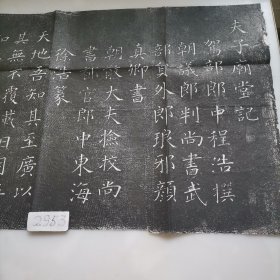 夫子廟堂記
駕部郎中程浩撰
朝議郎判尚書武
部員外郎琅邪顏
真卿書
朝散大夫撿挍尚
書都官郎中東海
徐浩篆
天地吾知其至廣以
其無不覆載日月吾
2953